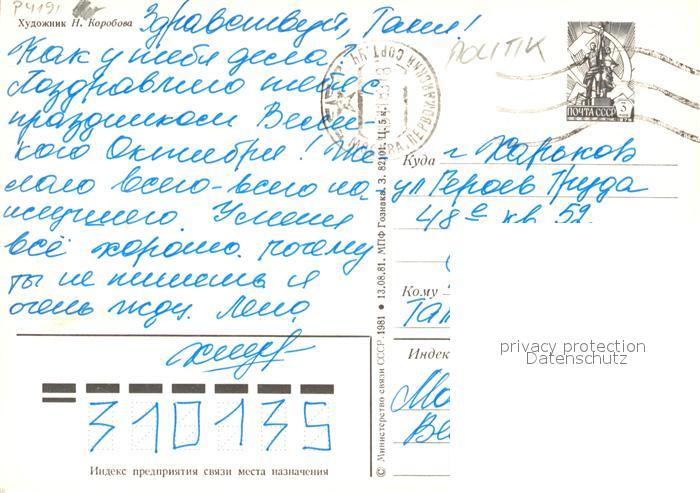 P4191
Художник Н. Коробова
Здравствуй, Таня!
Как у тебя дела?
Поздравляю тебя с
праздником Вели-
кого Октября! Же-
лаю всего-всего на-
илучшего. У меня
всё хорошо. Почему
ты не пишешь я
очень жду. Лена
310135
Индекс предприятия связи места назначения
© Министерство связи СССР. 1981 • 13.08.81. МПФ Гознака. З. 82101. Ц. 5 к.
POLITIK
ПОЧТА СССР 3
Куда г. Харьков
ул Героев Труда
48е кв 52
Кому
Индекс
privacy protection
Datenschutz